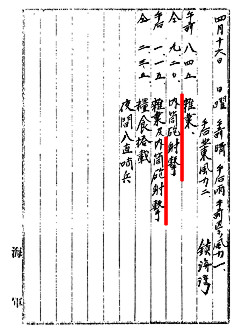 四月十六日 日曜 午前晴 午后雨 午前匹風力一、
午后東風力二 鎮海湾
午前 八、四五 雜業、
仝 九、二〇、 内筒砲射撃
午后 一、一五 雜業及内筒砲射撃
仝 二、三五、 糧食搭載
夜間ハ直哨兵
海軍